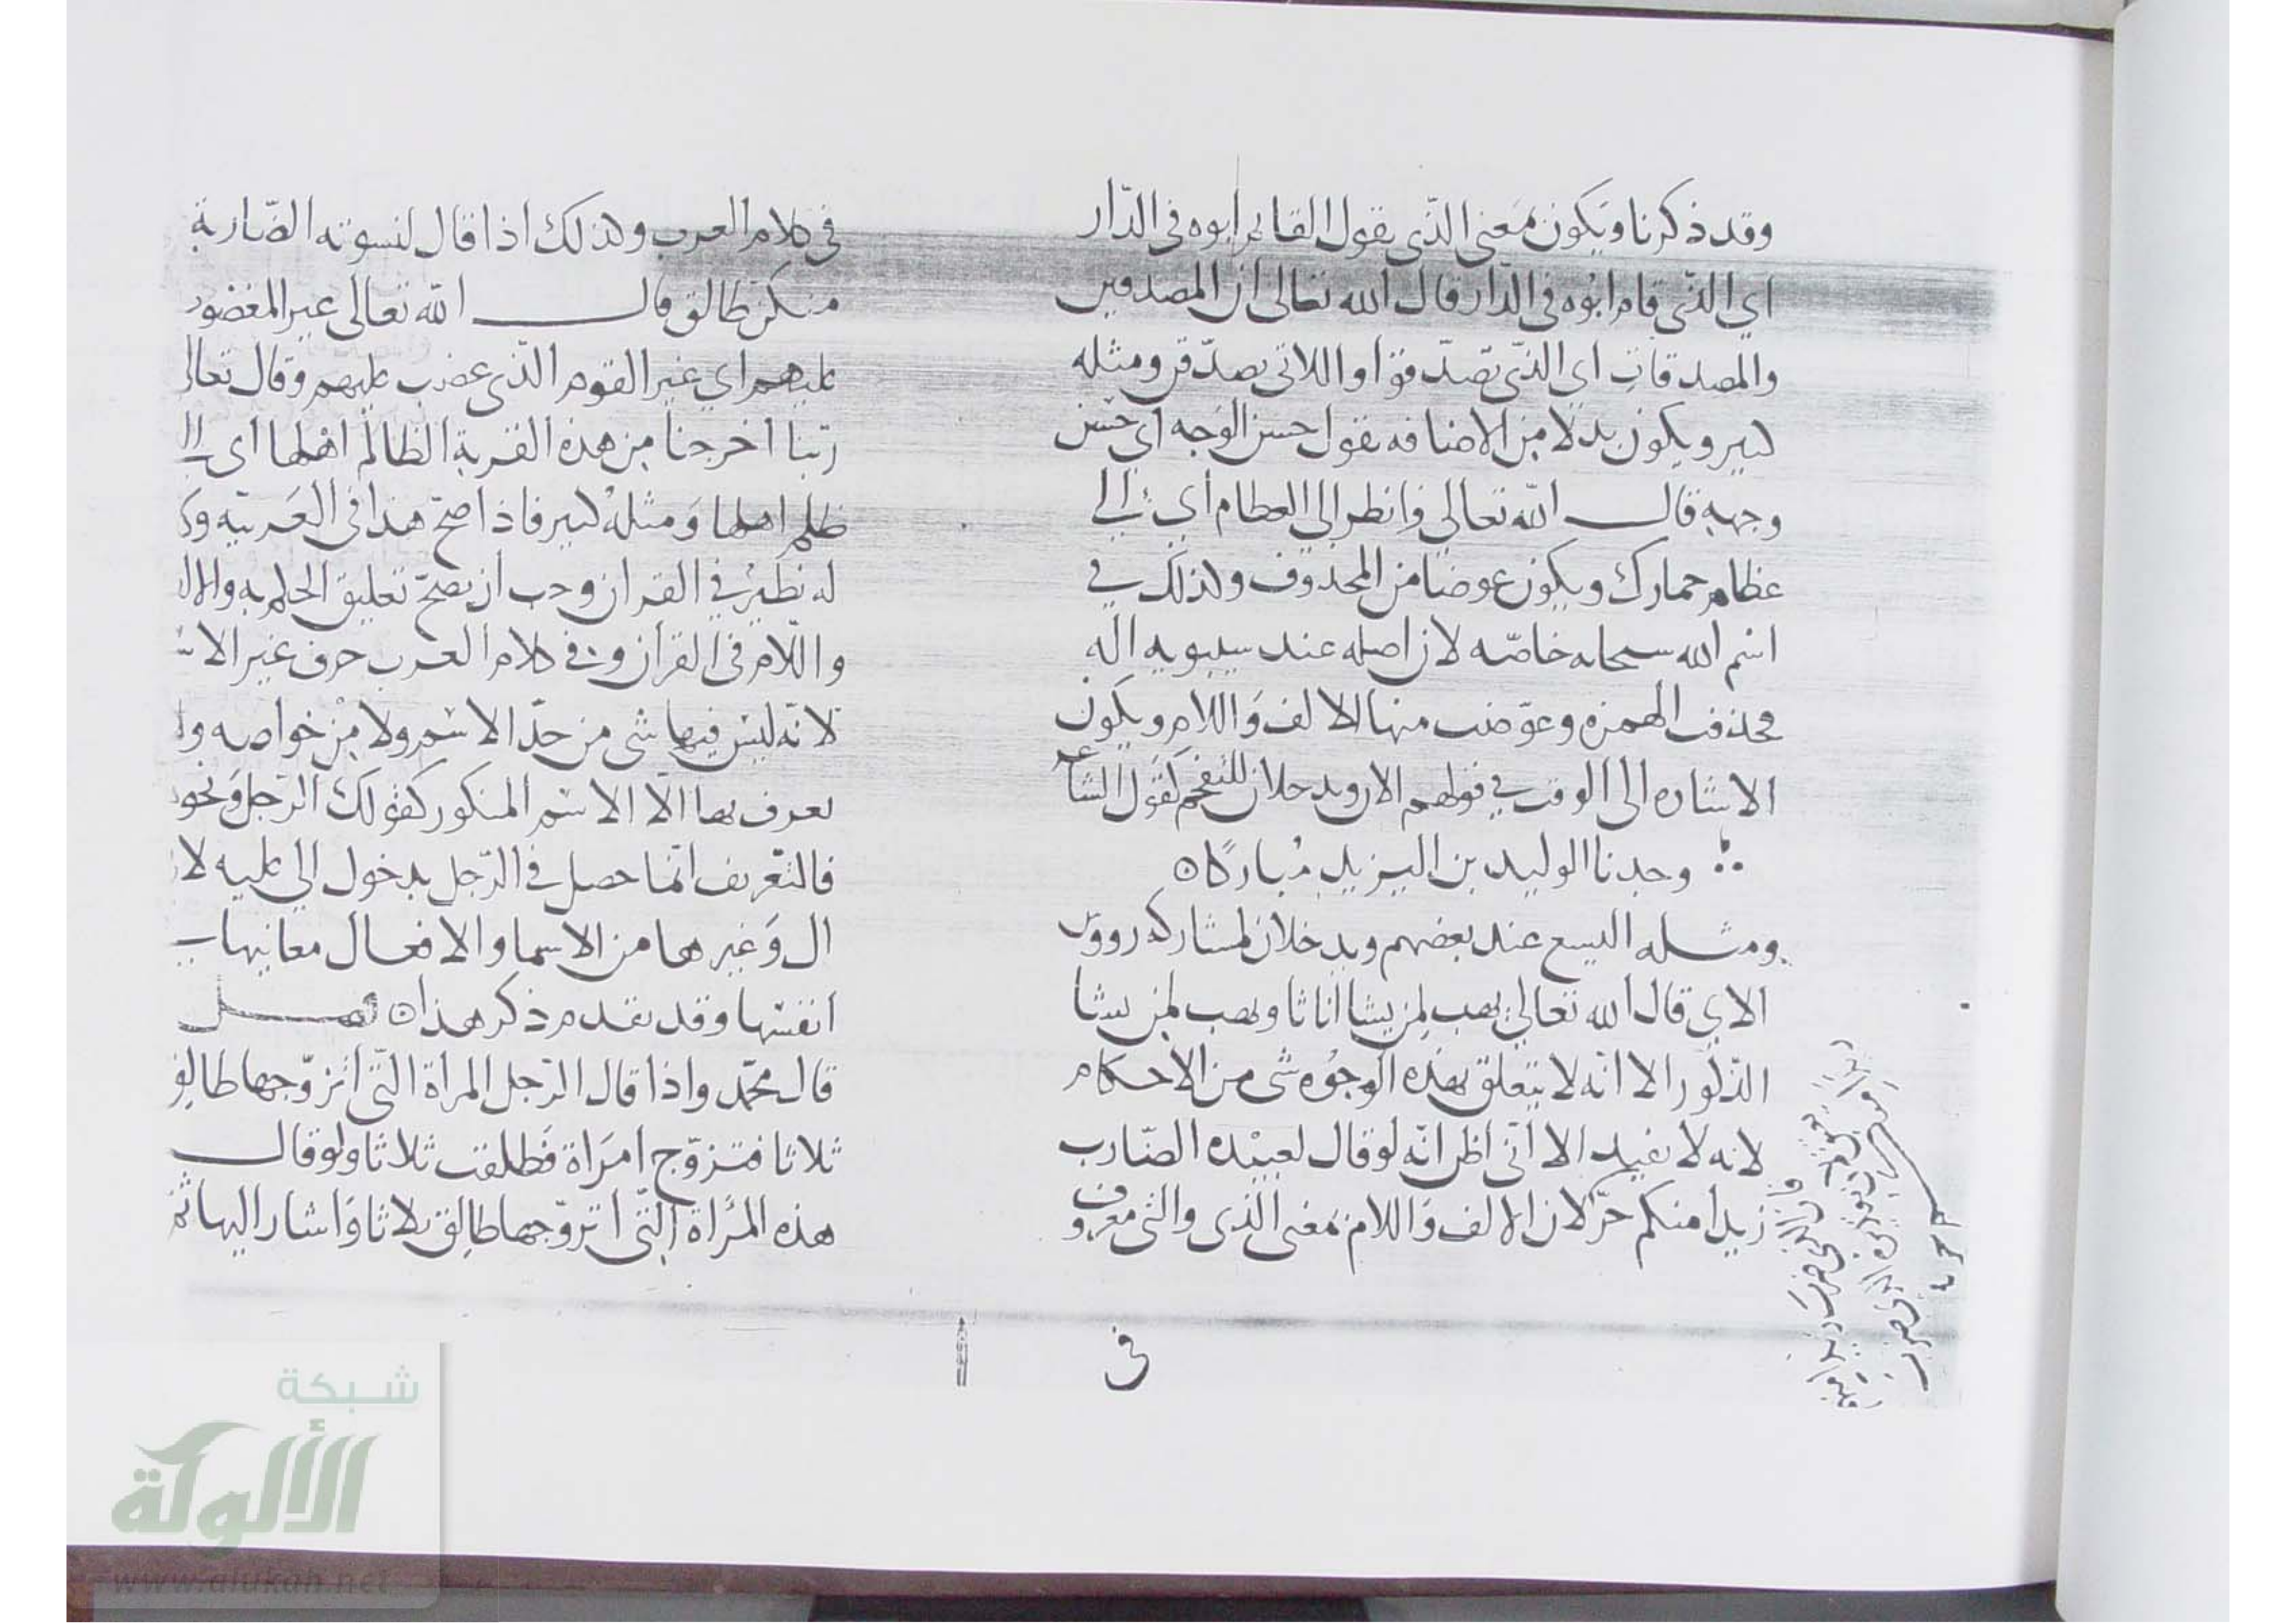 وقد ذكرنا ويكون بمعنى الذي يقول القائم ابوه في الدار
اي الذي قام ابوه في الدار قال الله تعالى ان المصدقين
والمصدقات اي الذي تصدقوا واللاتي تصدقن ومثله
كثير ويكون بدلا من الاضافه يقول حسن الوجه اي حسن
وجهه قال الله تعالى وانظر الى العظام اي الى
عظام حمارك ويكون عوضا من المحذوف وكذلك في
اسم الله سبحانه خاصه لان اصله عند سيبويه اله
فحذفت الهمزه وعوضت منها الالف واللام ويكون
الاشاره الى الوقت في قولهم الان ويدخلان للتفخيم كقول الشاعر
وجدنا الوليد بن اليزيد مباركا
ومثله اليسع عند بعضهم ويدخلان لمشاركه رووس
الاي قال الله تعالى يهب لمن يشا اناثا ويهب لمن يشا
الذكور الا انه لا يتعلق بهذه الوجوه شي من الاحكام
لانه لا يفيد الا اني اظن انه لو قال لعبيده الضارب
زيدا منكم حر لان الالف واللام بمعنى الذي والتي معروف
في
في كلام العرب وكذلك اذا قال لنسوته الضاربة
منكن طالق قال الله تعالى غير المغضوب
عليهم اي غير القوم الذي غضب عليهم وقال تعالى
ربنا اخرجنا من هذه القرية الظالم اهلها اي
ظلم اهلها ومثله كثير فاذا صح هذا في العربية
له نظير في القران وجب ان يصح تعليق الحكم به
واللام في القران وفي كلام العرب حرف غير
لانه ليس فيها شي من حد الاسم ولا من خواصه
تعرف بها الا الاسم المنكور كقولك الرجل ونحو
فالتعريف انما حصل في الرجل بدخول ال عليه
ال وغيرها من الاسما والافعال معانيها
انفسها وقد تقدم ذكر هذا فصل
قال محمد واذا قال الرجل المراة التي اتزوجها طالق
ثلاثا فتزوج امراة فطلقت ثلاثا ولو قال
هذه المراة التي اتزوجها طالق ثلاثا واشار اليها
شبكة
الألوكة
www.alukah.net